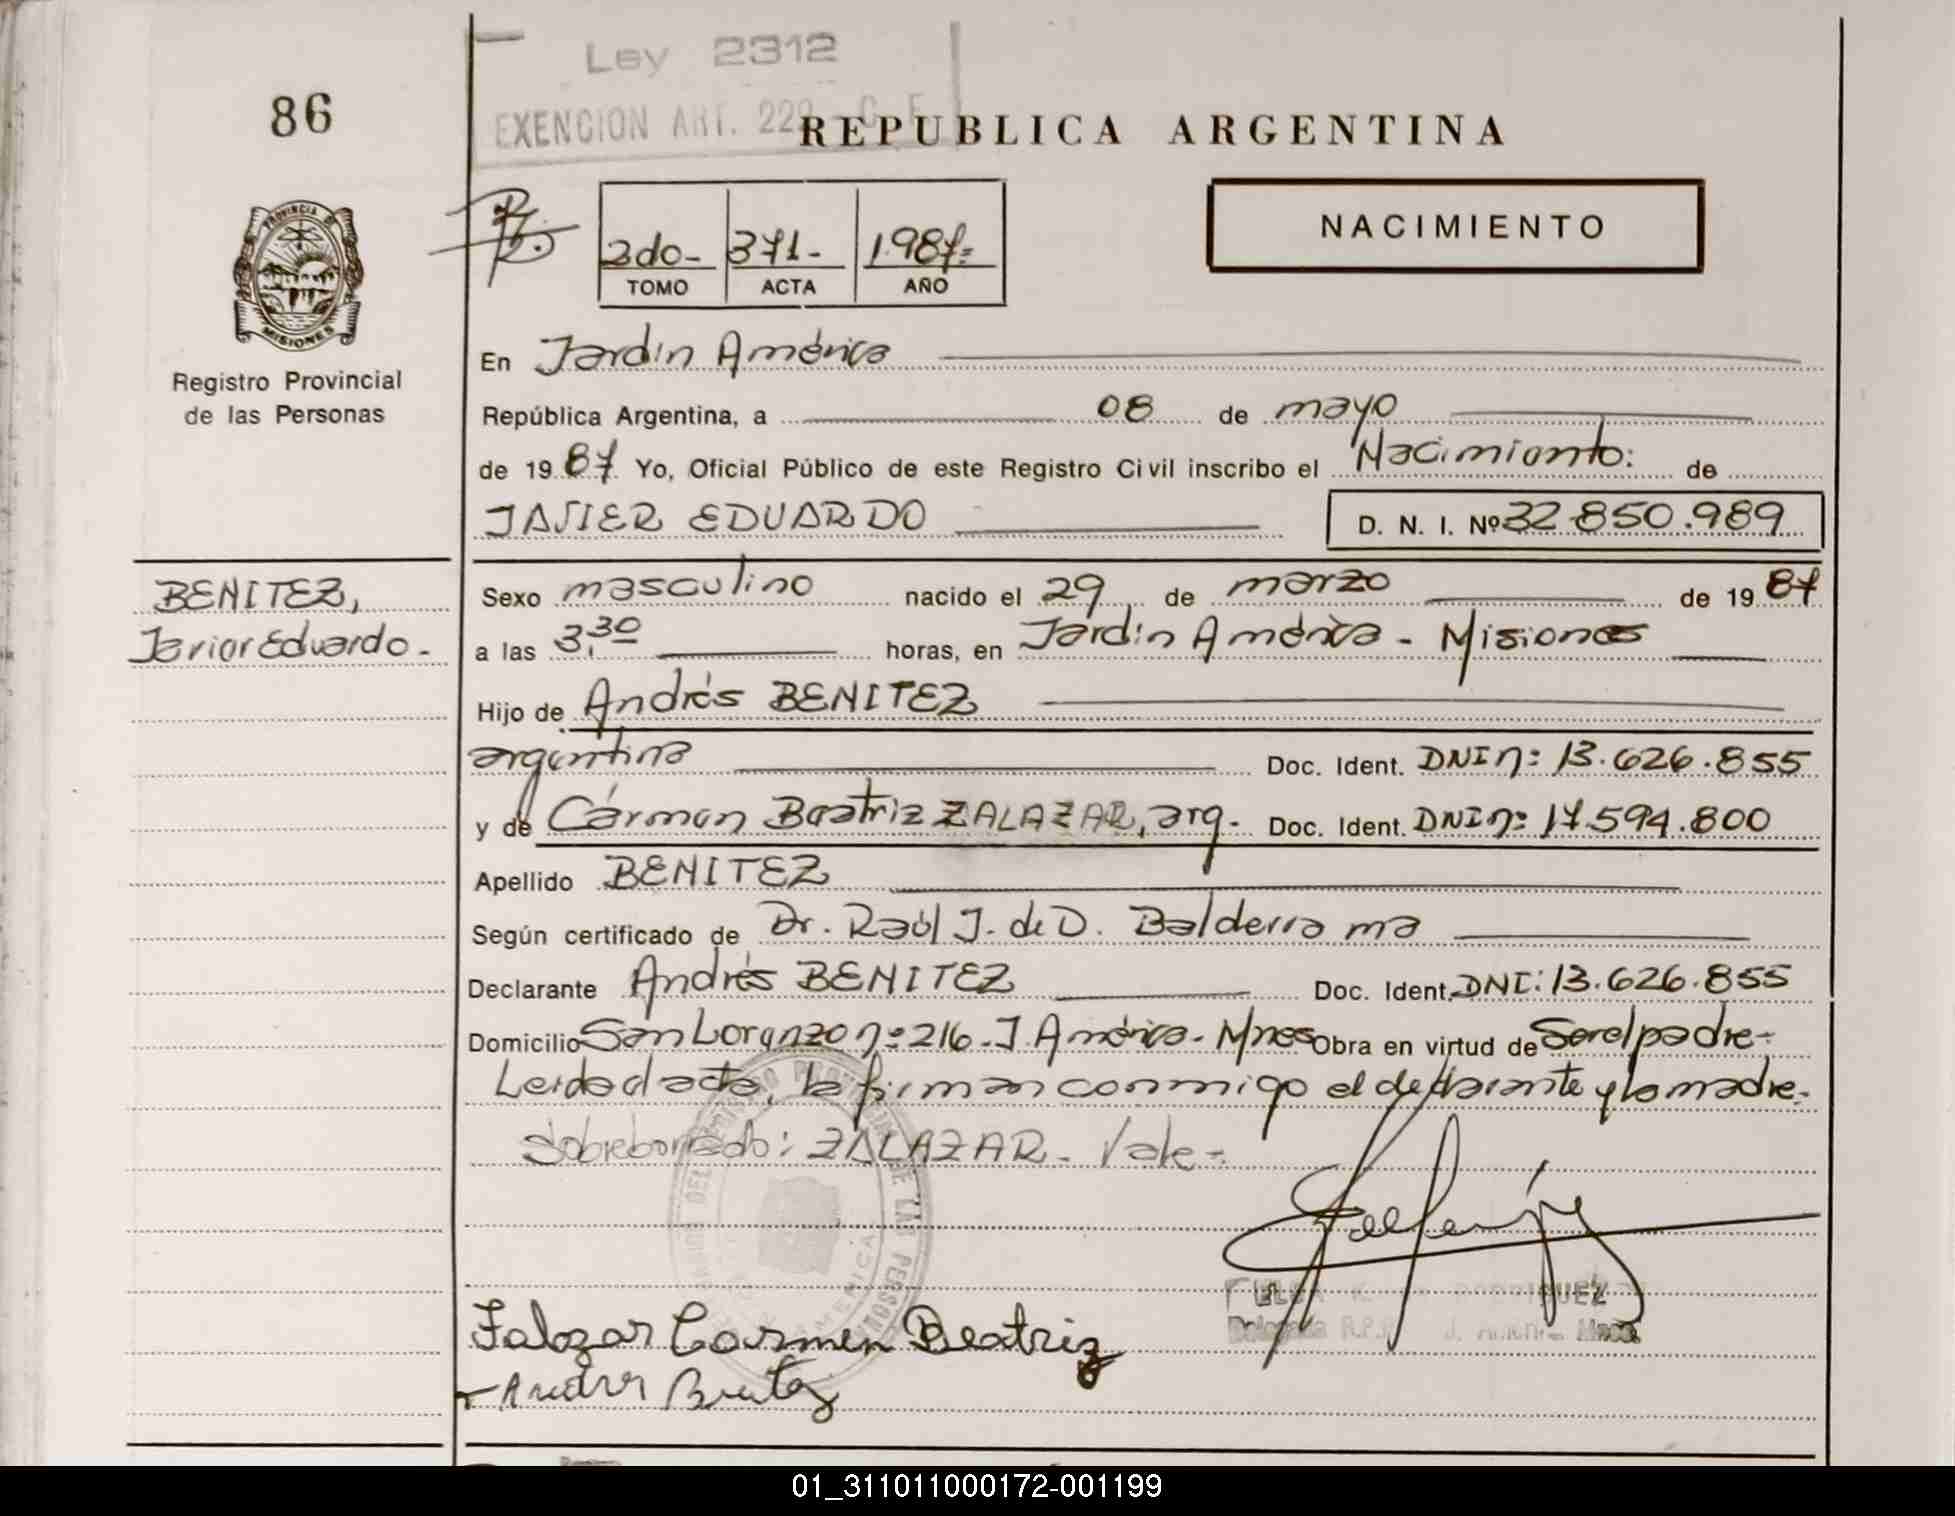 Ley 2312
EXENCION ART. 229 C.F.
86
REPUBLICA ARGENTINA
NACIMIENTO
2do- 371- 1987=
TOMO ACTA AÑO
PROVINCIA D
MISIONES
Registro Provincial
de las Personas
En Jardín América
República Argentina, a 08 de mayo
de 19 87 Yo, Oficial Público de este Registro Civil inscribo el Nacimiento: de
JAVIER EDUARDO D. N. I. Nº 32.850.989
BENITEZ,
Javier Eduardo.-
Sexo masculino nacido el 29 de marzo de 19 87
a las 3,30 horas, en Jardín América - Misiones
Hijo de Andrés BENITEZ
argentina Doc. Ident. DNI n: 13.626.855
y de Cármen Beatriz ZALAZAR, arg. Doc. Ident. DNI nº 17.594.800
Apellido BENITEZ
Según certificado de Dr. Raúl J. de D. Balderrama
Declarante Andrés BENITEZ Doc. Ident. DNI: 13.626.855
Domicilio San Lorenzo nº 216. J. América - Mnes Obra en virtud de Ser el padre.-
Leida el acta, la firman conmigo el declarante y la madre.-
Sobreborrado: ZALAZAR. Vale.-
DE LAS PERSONAS
RODRIGUEZ
Delegada R.P.P. J. América Mnes.
Zalazar Carmen Beatriz
Andres Benitez
01_311011000172-001199